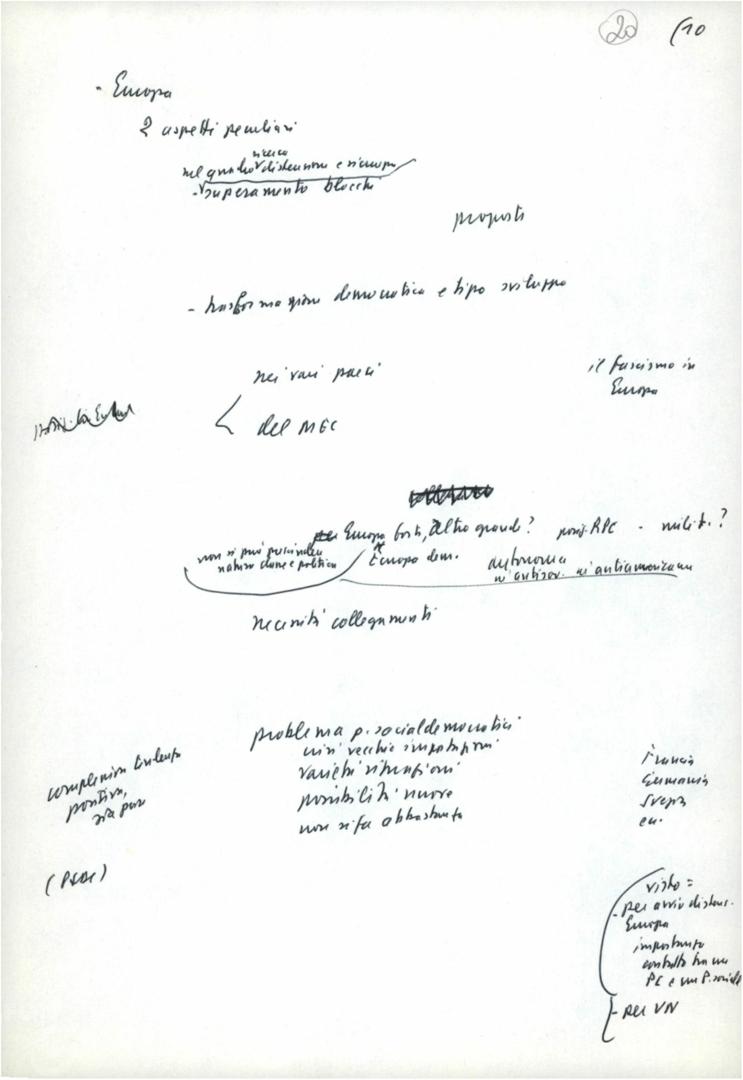 20 (10
- Europa
2 aspetti peculiari
ricerca
nel quadro distensione e
- superamento blocchi
proposte
- trasformazione democratica e tipo sviluppo
nei vari paesi
il fascismo in
Europa
del MEC
per Europa forte, altro grande? posiz. RPC - milit.?
non si può prescindere
natura classe e politica
Europa dem.
autonoma
né antisov. né antiamericana
necessità collegamenti
problema p. socialdemocratici
crisi vecchie impostazioni
varietà situazioni
possibilità nuove
non si fa abbastanza
complessiva
positiva,
sia pur
Francia
Germania
Svezia
ecc.
visto =
- per avvio distens.
Europa
importante
contatto tra un
PC e un P. social
- per VN